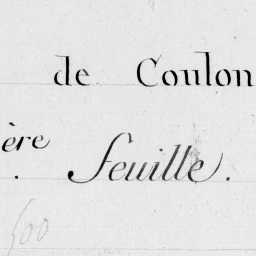 de Coulon
ère. feuille.
500